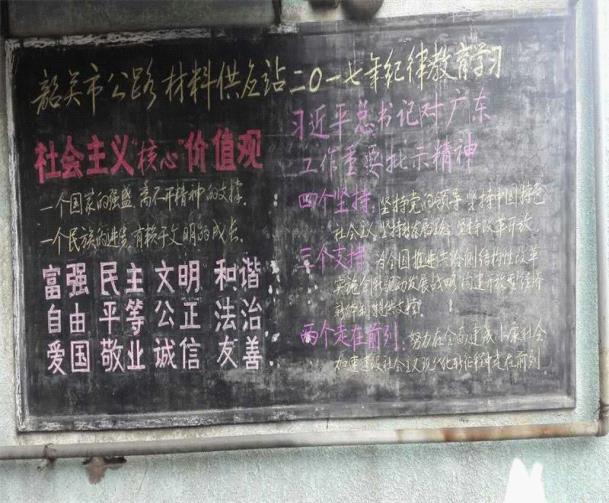 韶关市公路材料供应站二〇一七年纪律教育学习
社会主义“核心”价值观
一个国家的强盛,离不开精神的支撑.
一个民族的进步,有赖于文明的成长.
富强 民主 文明 和谐
自由 平等 公正 法治
爱国 敬业 诚信 友善
习近平总书记对广东
工作重要批示精神
四个坚持:坚持党的领导、坚持中国特色
社会主义、坚持新发展理念、坚持改革开放
三个支撑:为全国推进供给侧结构性改革
实施创新驱动发展战略、构建开放型经济
新体制提供支撑.
两个走在前列:努力在全面建成小康社会
加快建设社会主义现代化新征程中走在前列